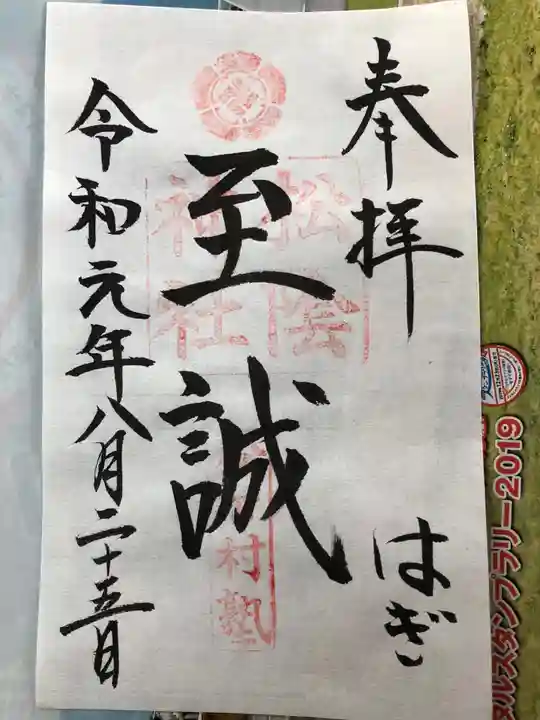 奉拝
はぎ
至誠
松陰
神社
松下村塾
令和元年八月二十五日
タルスタンプラリー2019